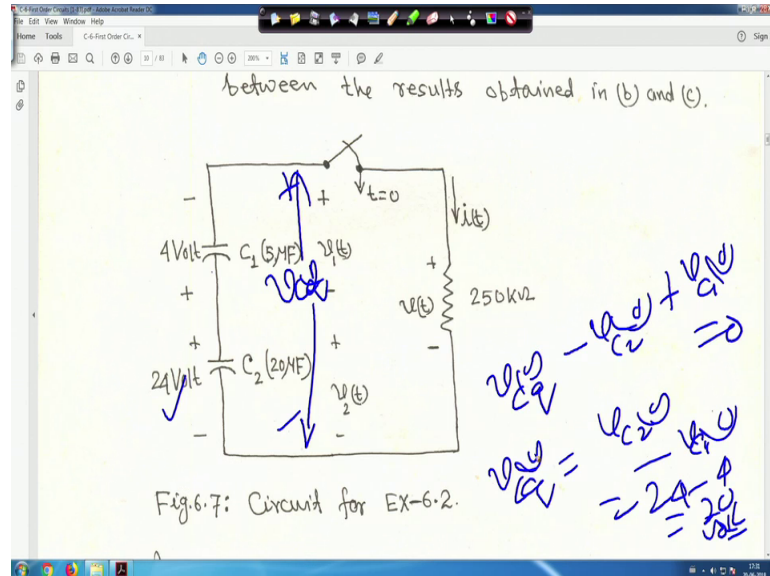 C-6-First Order Circuits (1-83).pdf - Adobe Acrobat Reader DC
File Edit View Window Help
Home Tools C-6-First Order Cir... × Sign
10 / 83 200%
between the results obtained in (b) and (c).
t=0
i(t)
4Volt C₁(5μF) v₁(t)
v(t) 250kΩ
24Volt C₂(20μF) v₂(t)
v_Ceq(0) - v_C2(0) + v_C1(0) = 0
v_Ceq(0) = v_C2(0) - v_C1(0)
= 24-4
= 20 volt
Fig.6.7: Circuit for EX-6.2.
17:31